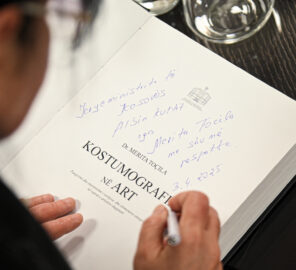 Kryeministrit të
Kosovës
Albin Kurtit
nga
Merita Tocila
me shumë
respektë
3.4.2025
Dr. MERITA TOCILA
KOSTUMOGRAFI
NË ART